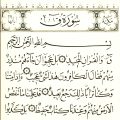 سُورَةُ قٓ
بِسْمِ اللَّهِ الرَّحْمَٰنِ الرَّحِيمِ
قٓ وَالْقُرْآنِ الْمَجِيدِ بَلْ عَجِبُوا أَنْ جَاءَهُمْ مُنْذِرٌ
مِنْهُمْ فَقَالَ الْكَافِرُونَ هَٰذَا شَيْءٌ عَجِيبٌ أَإِذَا مِتْنَا
وَكُنَّا تُرَابًا ذَٰلِكَ رَجْعٌ بَعِيدٌ قَدْ عَلِمْنَا مَا تَنْقُصُ
الْأَرْضُ مِنْهُمْ وَعِنْدَنَا كِتَابٌ حَفِيظٌ بَلْ كَذَّبُوا